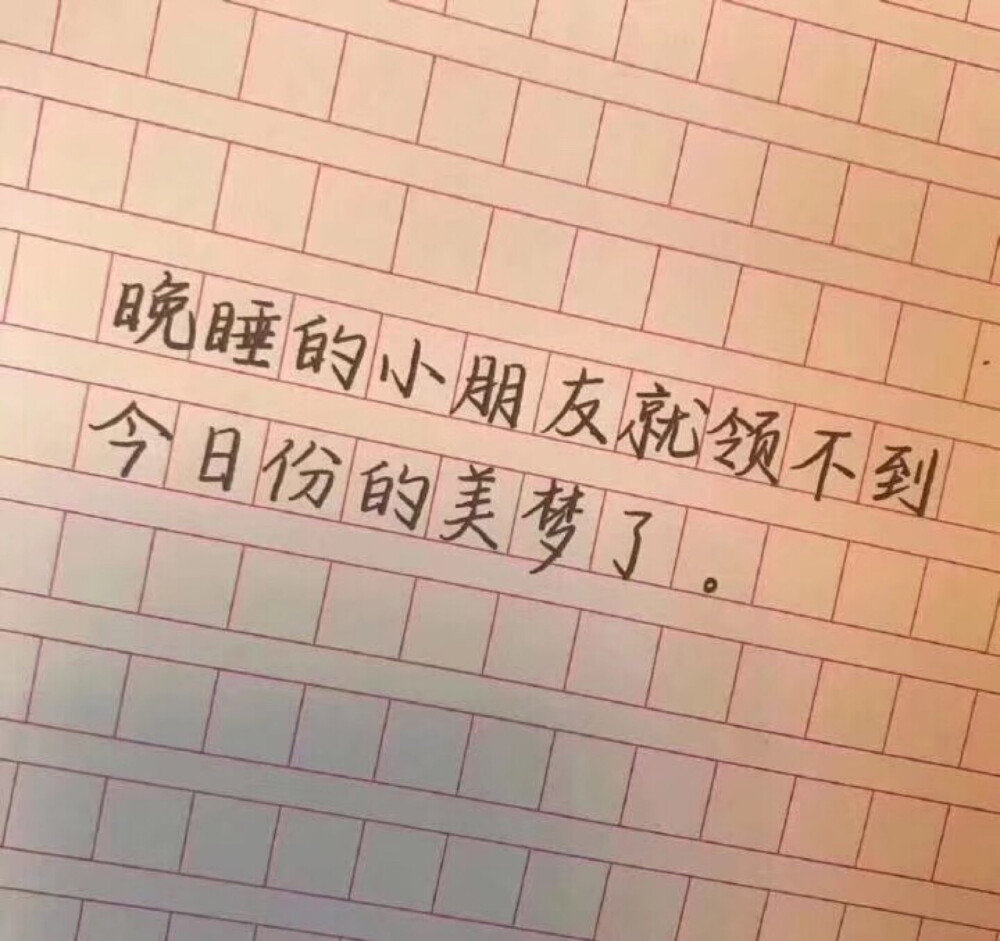 晚睡的小朋友就领不到
今日份的美梦了。